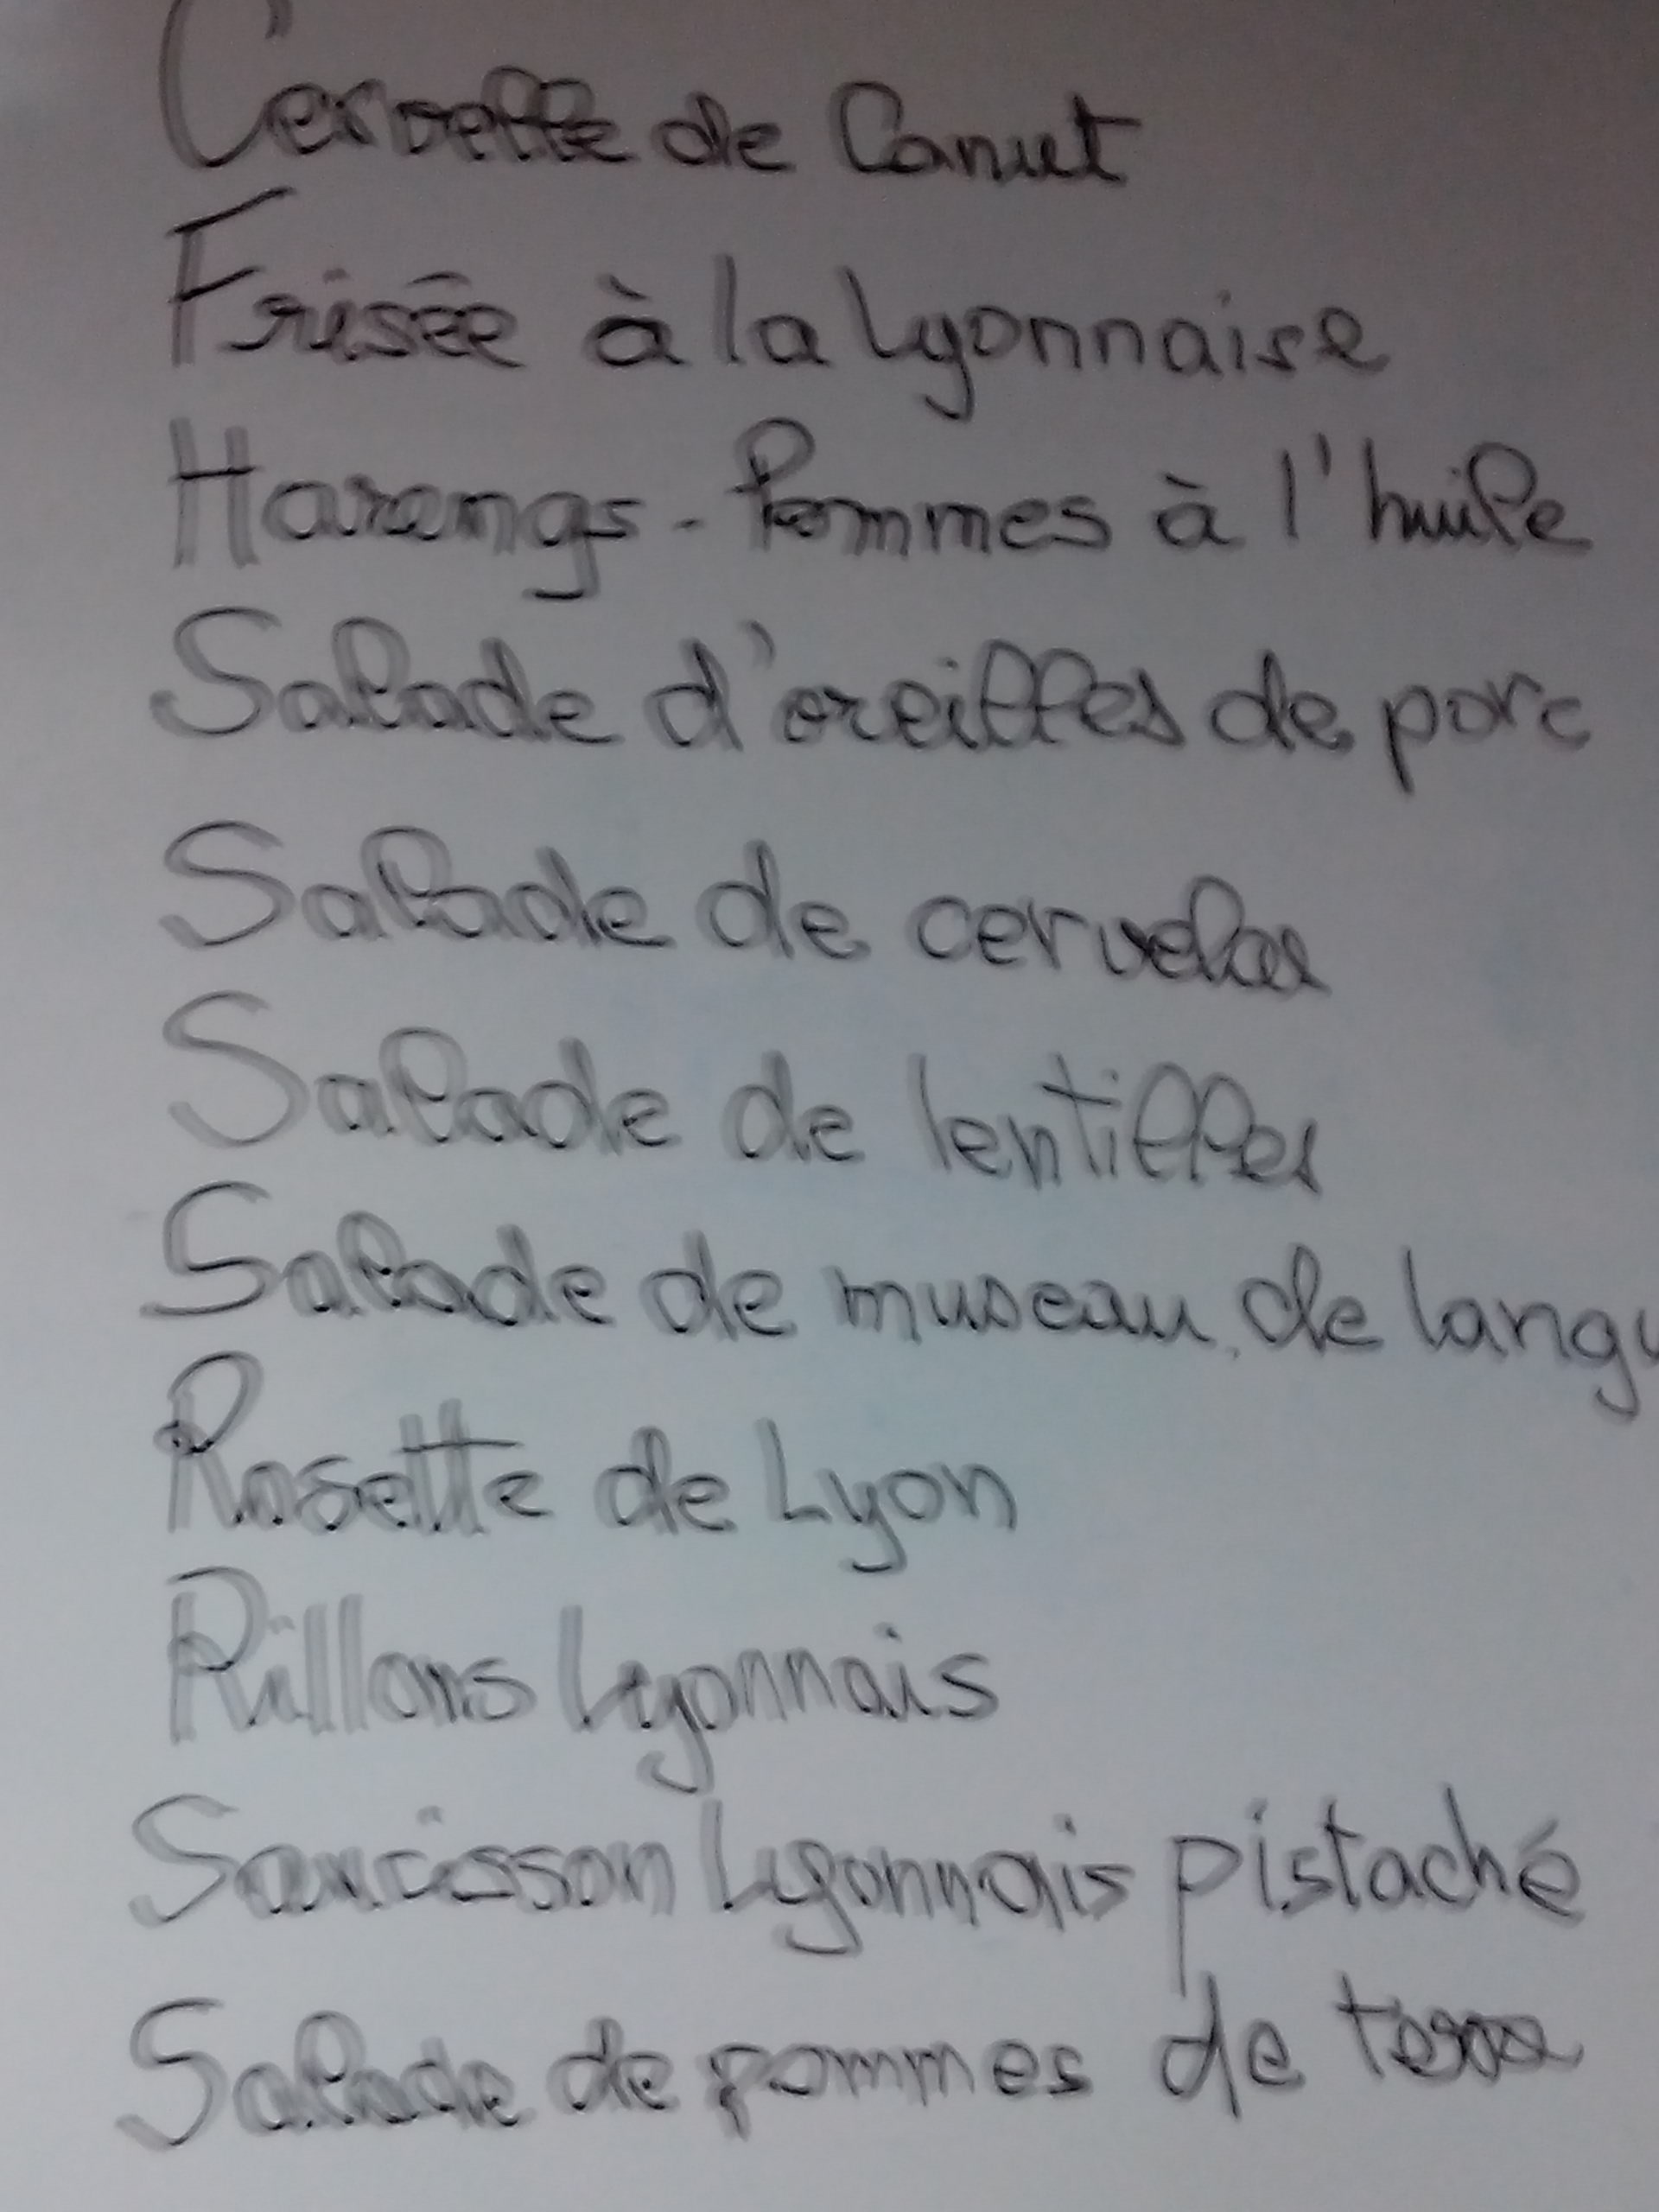 Cervelle de Canut
Frisée à la Lyonnaise
Harengs - Pommes à l'huile
Salade d'oreilles de porc
Salade de cervelas
Salade de lentilles
Salade de museau, de langu
Rosette de Lyon
Rillons Lyonnais
Saucisson Lyonnais pistaché
Salade de pommes de terre